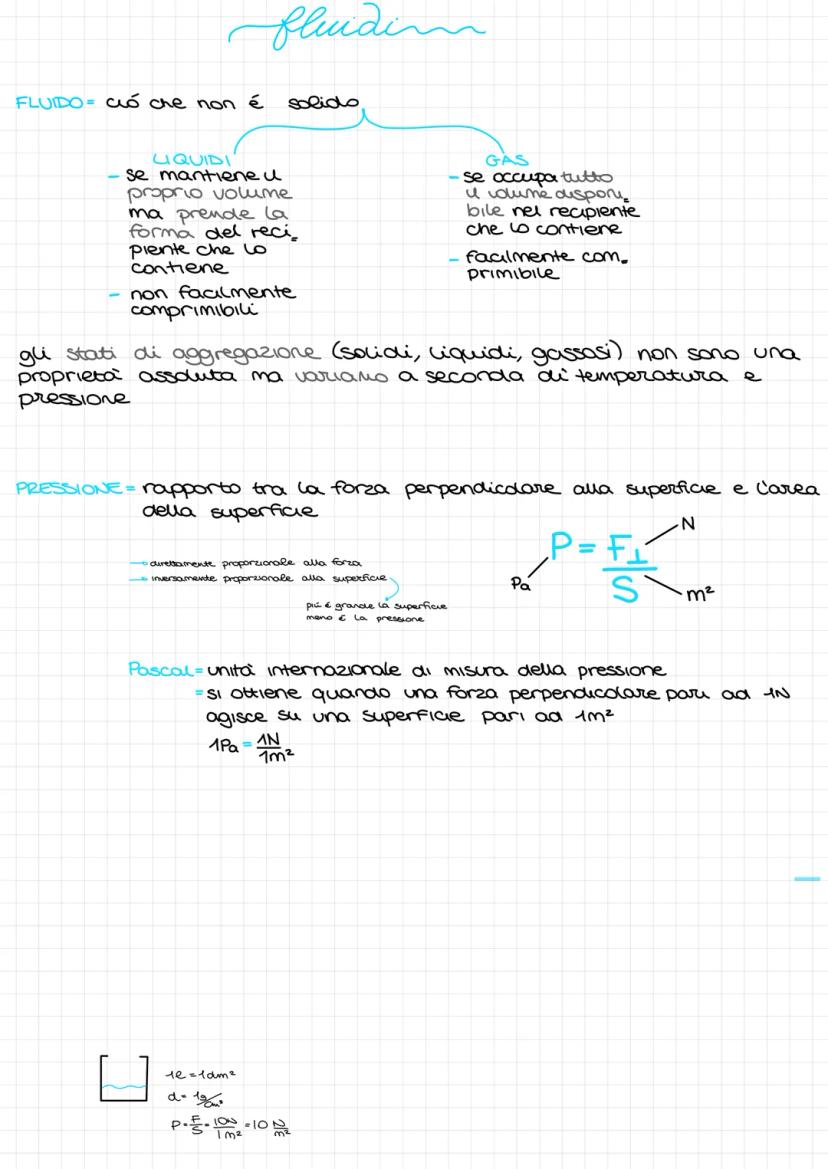 fluidi
FLUIDO = ció che non é solido
LIQUIDI
- se mantiene il
proprio volume
ma prende la
forma del reci=
piente che lo
contiene
- non facilmente
comprimibili
GAS
- se occupa tutto
il volume disponi=
bile nel recipiente
che lo contiene
- facilmente com=
primibile
gli stati di aggregazione (solidi, liquidi, gassosi) non sono una
proprietà assoluta ma variano a seconda di temperatura e
pressione
PRESSIONE = rapporto tra la forza perpendicolare alla superficie e l'area
della superficie
→ direttamente proporzionale alla forza
→ inversamente proporzionale alla superficie
più é grande la superficie
meno é la pressione
P = F⊥/S
N
Pa
m²
Pascal = unità internazionale di misura della pressione
= si ottiene quando una forza perpendicolare pari ad 1N
agisce su una superficie pari ad 1m²
1Pa = 1N/1m²
1l = 1dm²
d = 1g/cm³
P = F/S = 10N/1m² = 10 N/m²